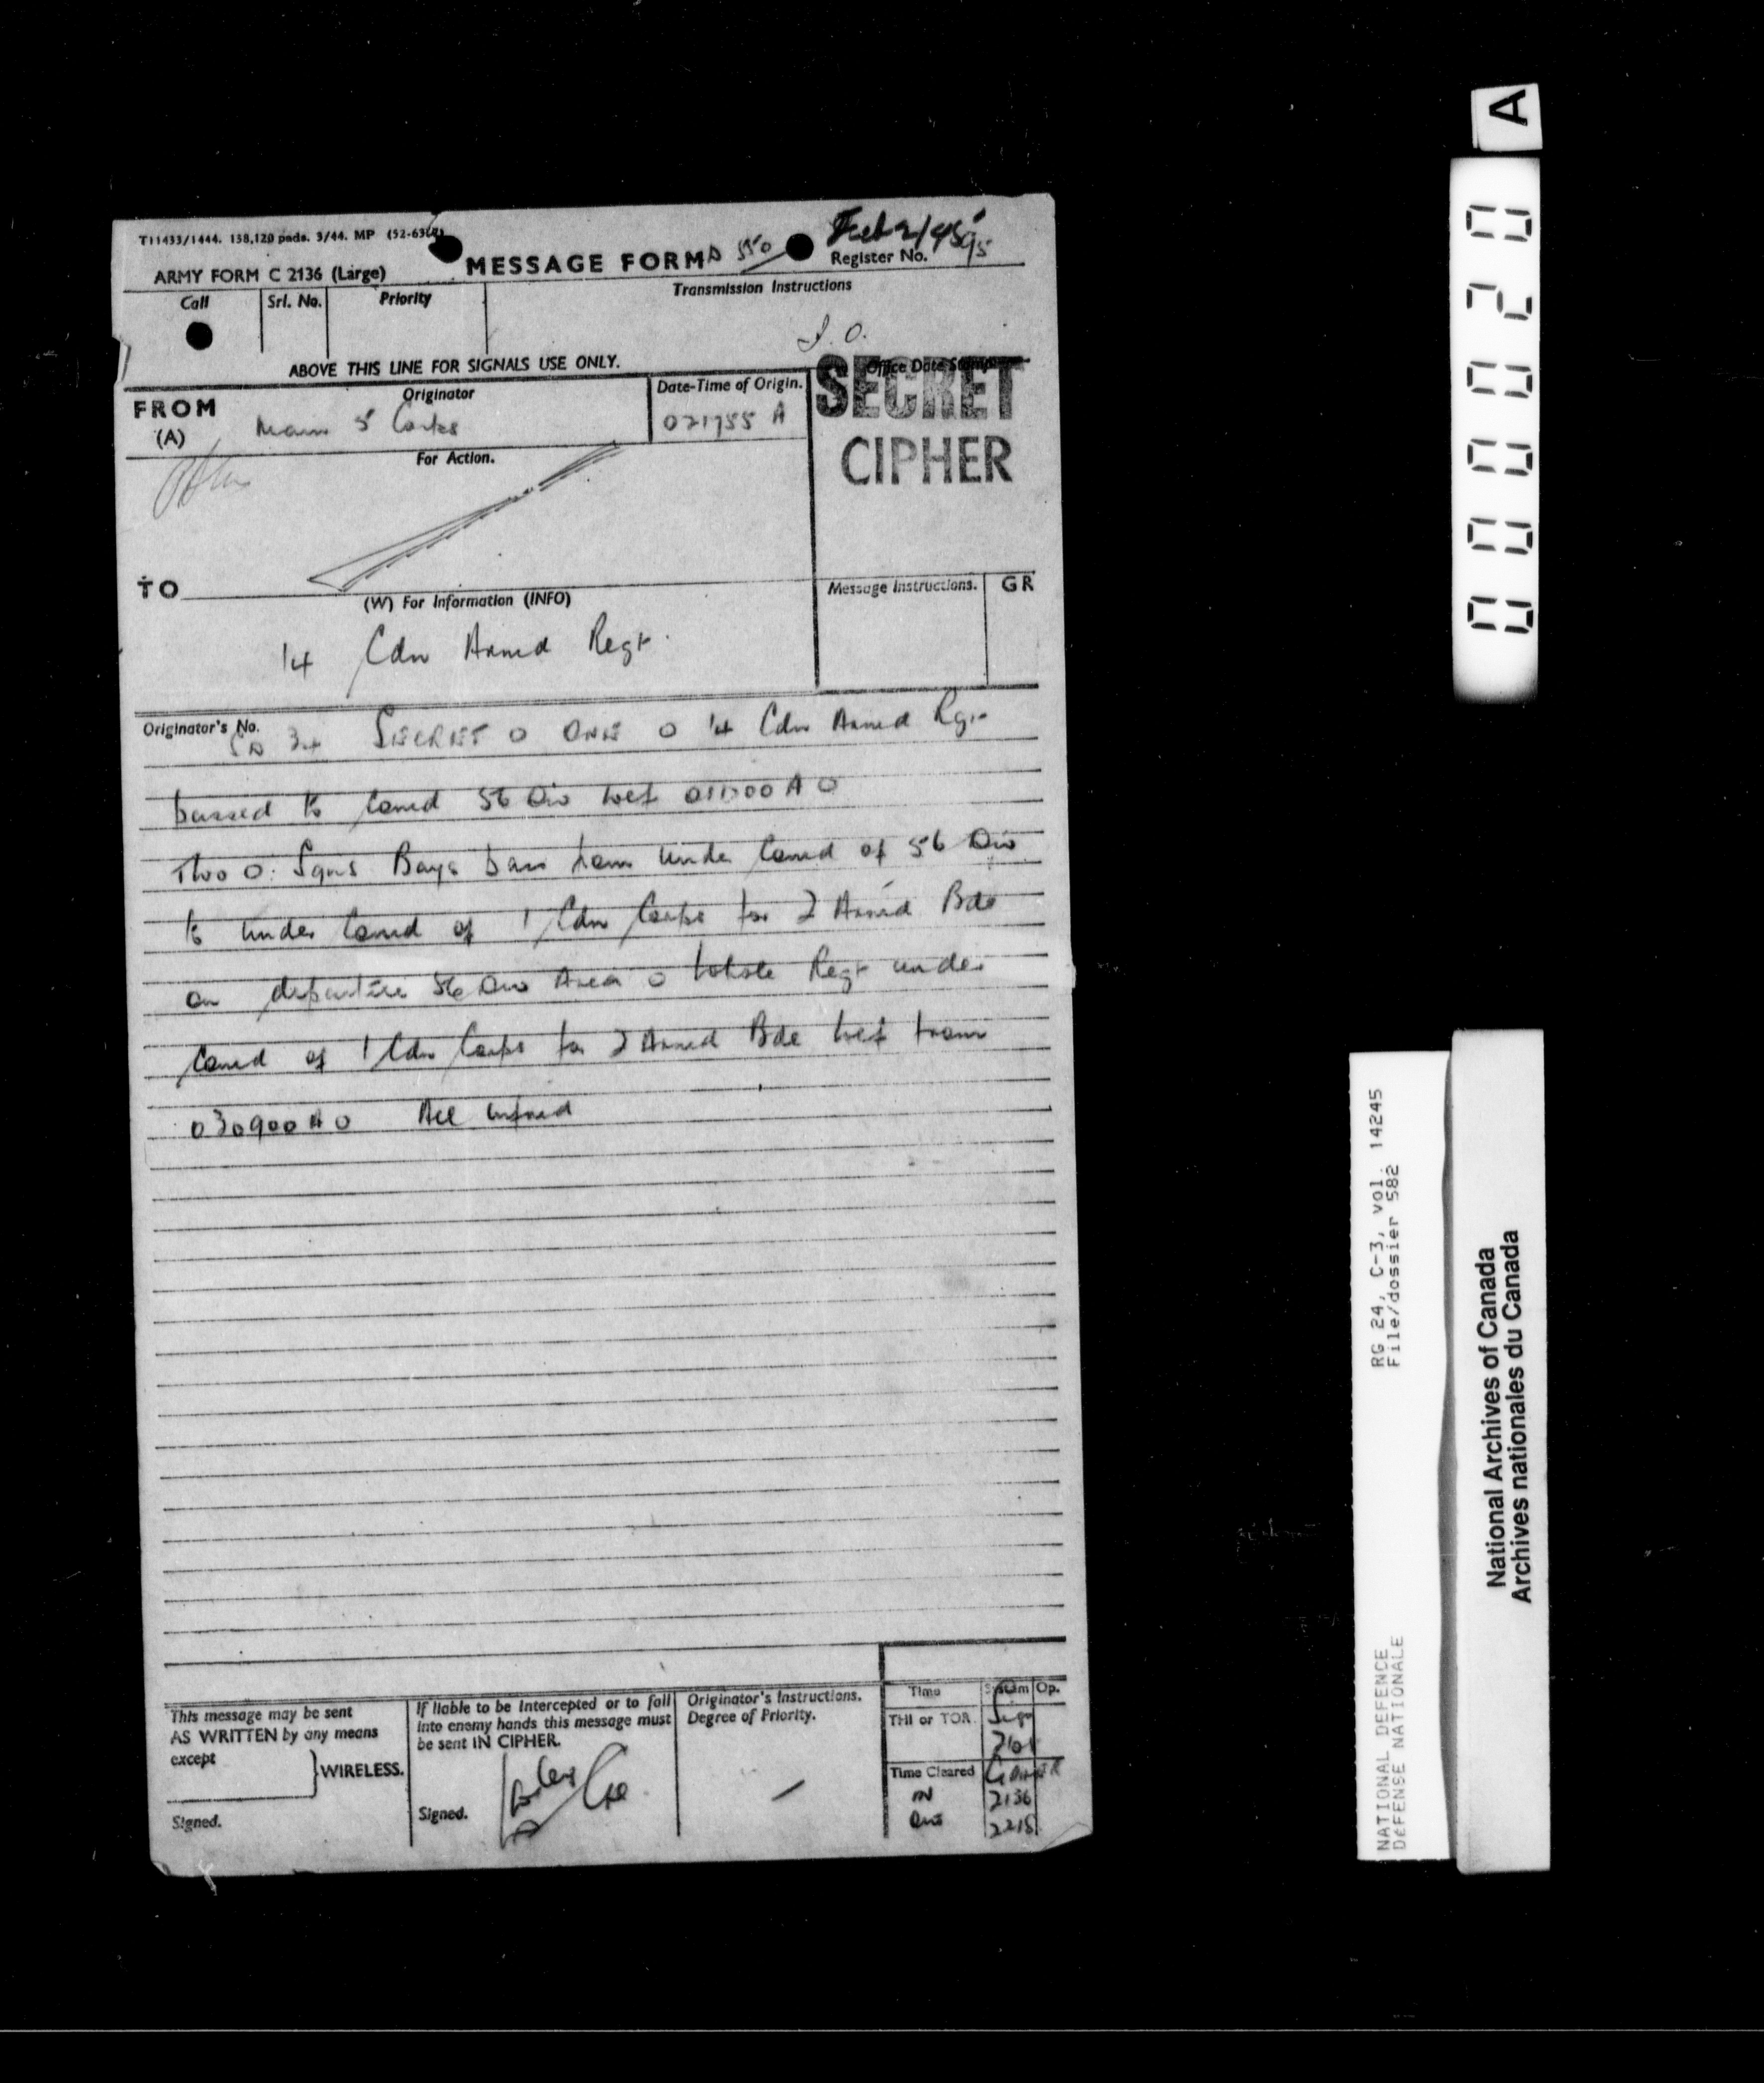 T11433/1444. 138,120 pads. 3/44. MP (52-6362)
ARMY FORM C 2136 (Large)
MESSAGE FORM
550
Feb 2/45
Register No. 95
Call
Srl. No.
Priority
Transmission Instructions
I.O.
ABOVE THIS LINE FOR SIGNALS USE ONLY.
FROM
(A)
Originator
Main 5 Corps
Date-Time of Origin.
021755 A
Office Date Stamp
SECRET
CIPHER
For Action.
TO
(W) For Information (INFO)
14 Cdn Armd Regt.
Message Instructions.
GR
Originator's No.
34 SECRET O ONE O 14 Cdn Armd Rgt
passed to Comd 56 Div wef A O
Two O. Sqns Bays pass from under Comd of 56 Div
to under Comd of 1 Cdn Corps for 2 Armd Bde
on departure 56 Div Area O Whole Regt under
Comd of 1 Cdn Corps for 2 Armd Bde wef from
030900 A O All infmd
This message may be sent
AS WRITTEN by any means
except
WIRELESS.
Signed.
If liable to be intercepted or to fall
into enemy hands this message must
be sent IN CIPHER.
Signed.
Originator's Instructions.
Degree of Priority.
Time
System
Op.
THI or TOR.
2101
Time Cleared
IN
2136
Out
2215
A
00020
RG 24, C-3, vol. 14245
File/dossier 582
NATIONAL DEFENCE
DÉFENSE NATIONALE
National Archives of Canada
Archives nationales du Canada